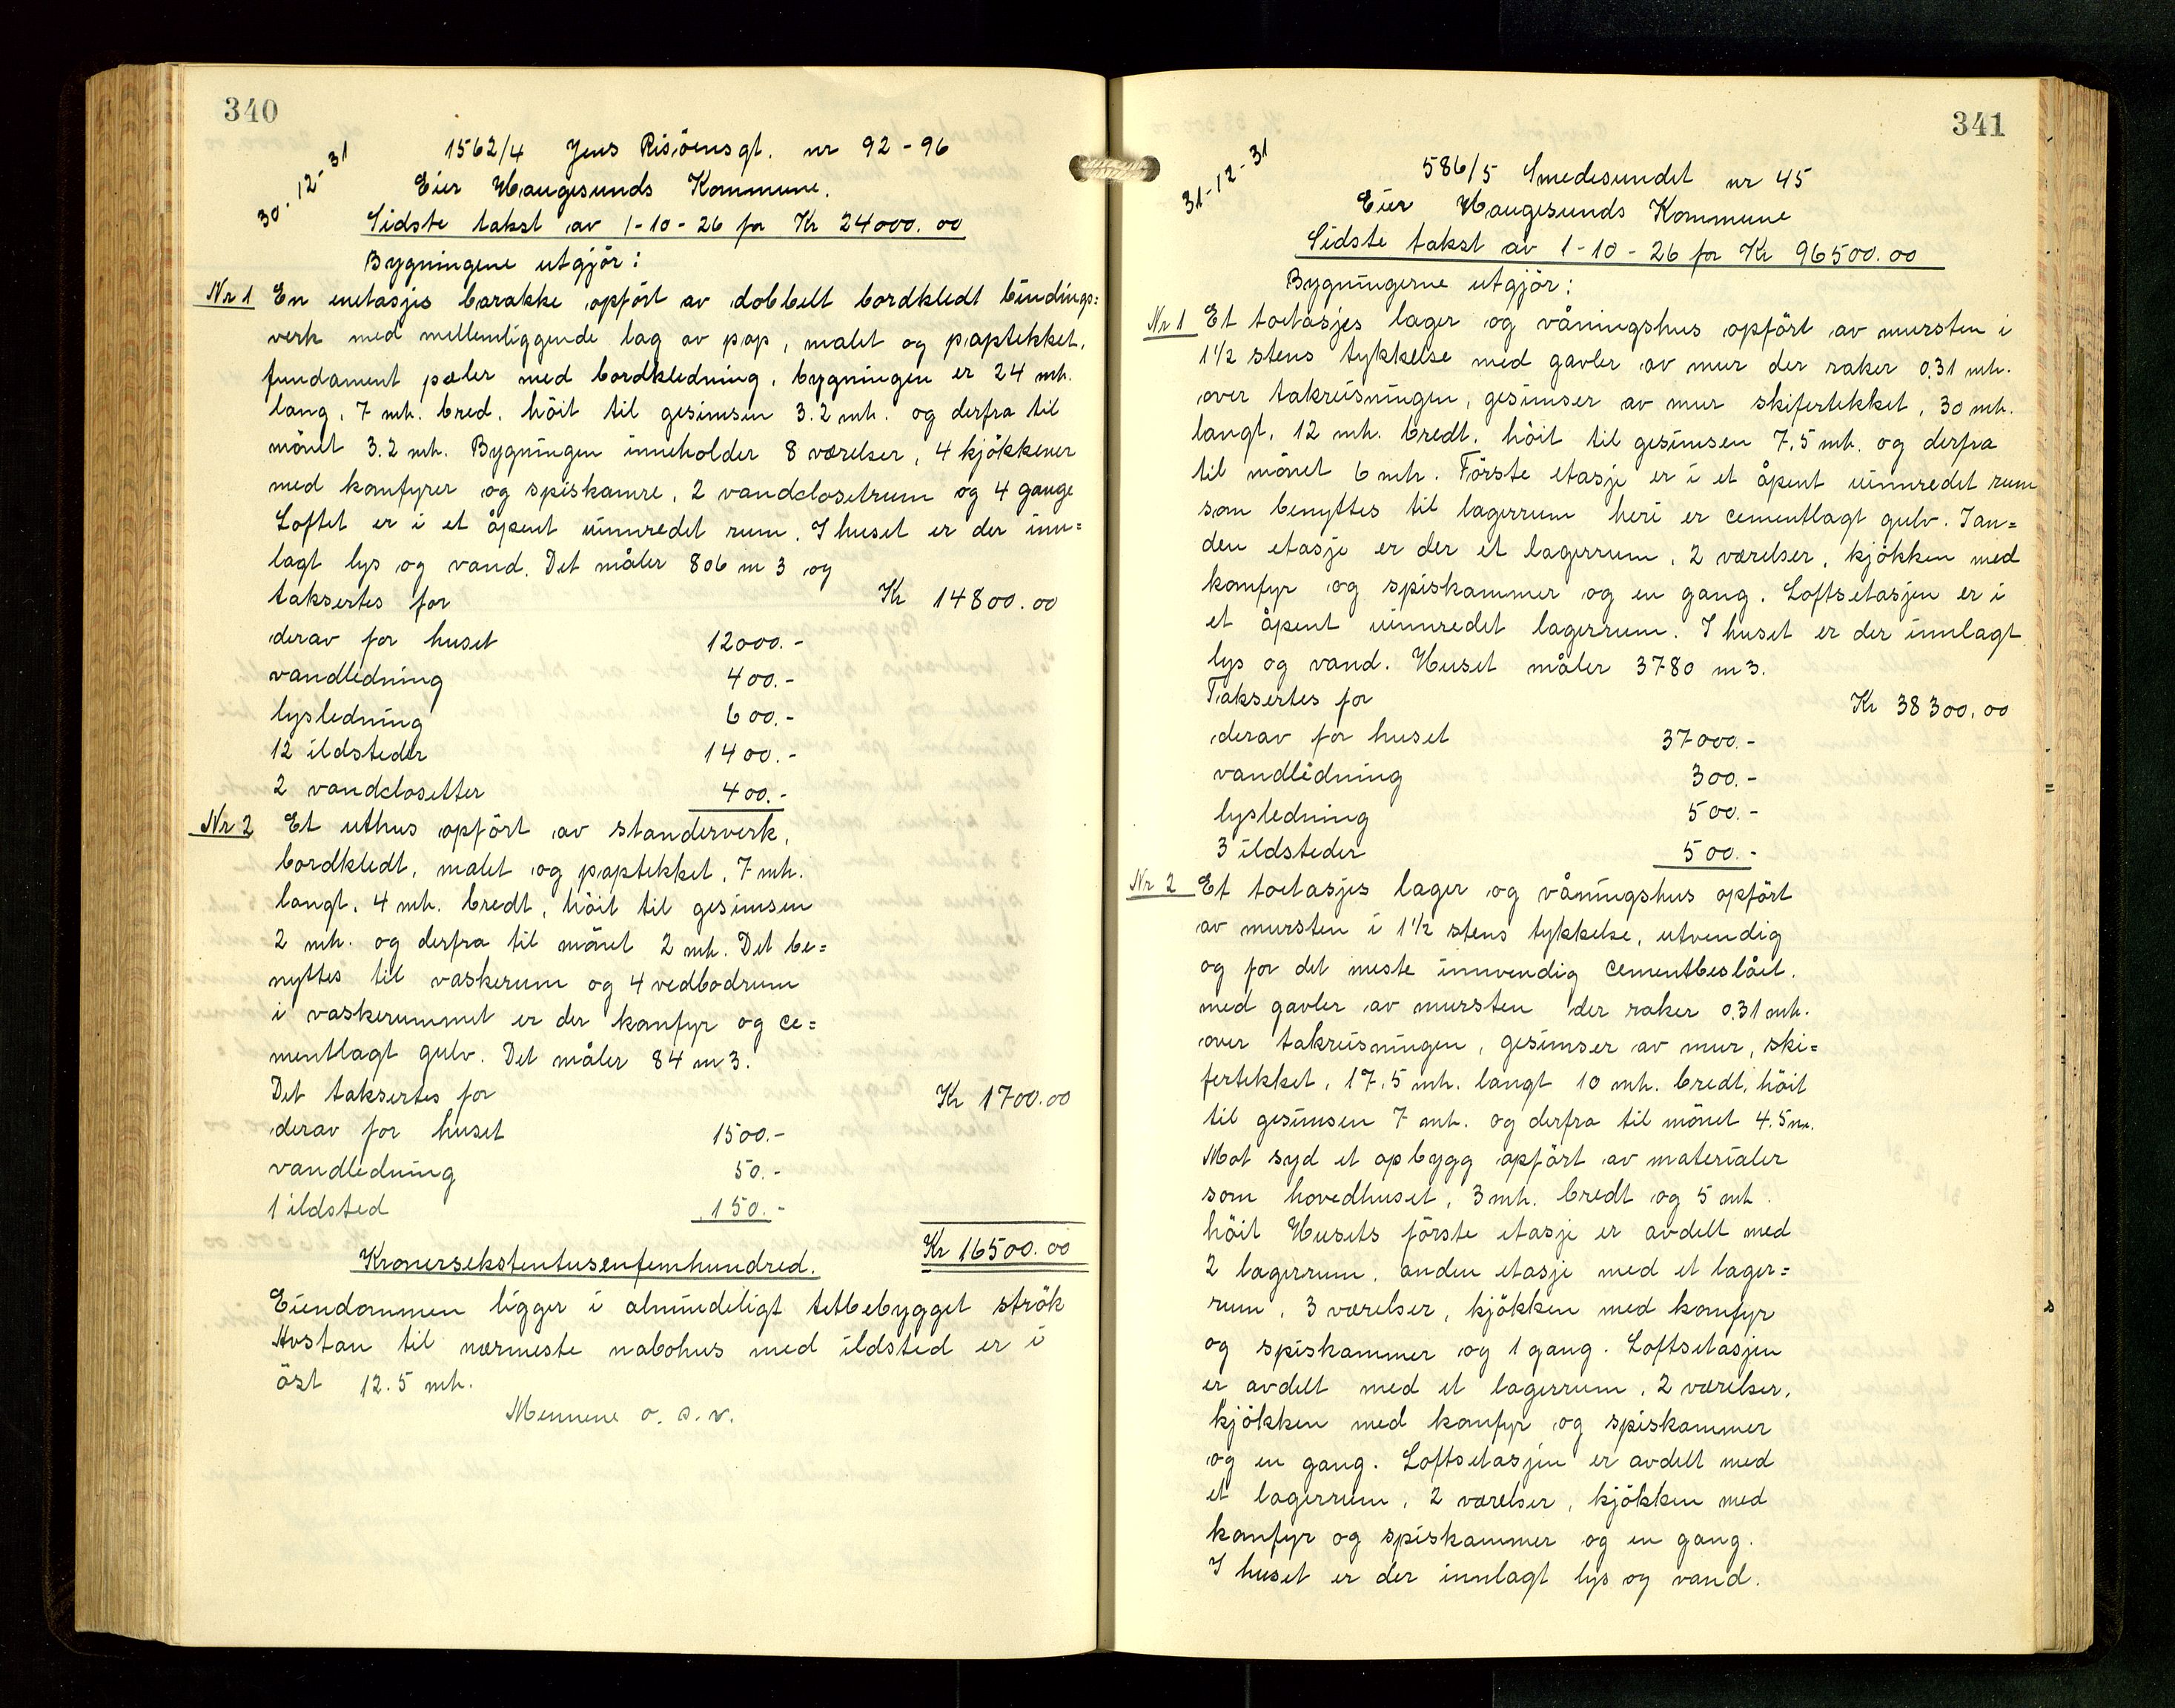 340
30-12-31
1562/4 Jens Risöensgt. nr 92-96
Eier Haugesunds Kommune.
Sidste takst av 1-10-26 for Kr 24000.00
Bygningene utgjör:
Nr 1 En enetasjes barakke opfört av dobbelt bordkledt bindings=
verk med mellemliggende lag av pap, malet og paptekket,
fundament pæler med bordkledning, bygningen er 24 mtr.
lang, 7 mtr. bred, höit til gesimsen 3.2 mtr. og derfra til
mönet 3.2 mtr. Bygningen inneholder 8 værelser, 4 kjökkener
med komfyrer og spiskamre, 2 vandclosetrum og 4 gange
Loftet er i et åpent uinnredet rum. I huset er der inn=
lagt lys og vand. Det måler 806 m3 og
taksertes for Kr 14800.00
derav for huset 12000.-
vandledning 400.-
lysledning 600.-
12 ildsteder 1400.-
2 vandclosetter 400.-
Nr 2 Et uthus opfört av standerverk,
bordkledt, malet og paptekket, 7 mtr.
langt, 4 mtr. bredt, höit til gesimsen
2 mtr. og derfra til mönet 2 mtr. Det be=
nyttes til vaskerum og 4 vedbodrum
i vaskerummet er der komfyr og ce=
mentlagt gulv. Det måler 84 m3.
Det taksertes for Kr 1700.00
derav for huset 1500.-
vandledning 50.-
1 ildsted 150.-
Kronersekstentusenfemhundred. Kr 16500.00
Eiendommen ligger i almindeligt tetbebygget strök
Avstan til nærmeste nabohus med ildsted er i
öst 12.5 mtr.
Mennene o.s.v.
341
31-12-31
586/5 Smedesundet nr 45
Eier Haugesunds Kommune
Sidste takst av 1-10-26 for Kr 96500.00
Bygningerne utgjör:
Nr 1 Et toetasjes lager og våningshus opfört av mursten i
1 1/2 stens tykkelse med gavler av mur der raker 0,31 mtr.
over takreisningen, gesimser av mur skifertekket, 30 mtr.
langt, 12 mtr. bredt, höit til gesimsen 7,5 mtr. og derfra
til mönet 6 mtr. Förste etasje er i et åpent uinnredet rum
som benyttes til lagerrum heri er cementlagt gulv. I an=
den etasje er der et lagerrum, 2 værelser, kjökken med
komfyr og spiskammer og en gang. Loftsetasjen er i
et åpent uinnredet lagerrum. I huset er der innlagt
lys og vand. Huset måler 3780 m3.
Taksertes for Kr 38300.00
derav for huset 37000.-
vandledning 300.-
lysledning 500.-
3 ildsteder 500.-
Nr 2 Et toetasjes lager og våningshus opfört
av mursten i 1 1/2 stens tykkelse, utvendig
og for det meste innvendig cementbeslået.
med gavler av mursten der raker 0,31 mtr.
over takreisningen, gesimser av mur, ski=
fertekket, 17,5 mtr. langt 10 mtr. bredt, höit
til gesimsen 7 mtr. og derfra til mönet 4.5 m.
Mot syd et opbygg opfört av materialer
som hovedhuset, 3 mtr. bredt og 5 mtr.
höit Husets förste etasje er avdelt med
2 lagerrum, anden etasje med et lager=
rum, 3 værelser, kjökken med komfyr
og spiskammer og 1 gang. Loftsetasjen
er avdelt med et lagerrum, 2 værelser,
kjökken med komfyr og spiskammer
og en gang. Loftsetasjen er avdelt med
et lagerrum, 2 værelser, kjökken med
komfyr og spiskammer og en gang.
I huset er der innlagt lys og vand.